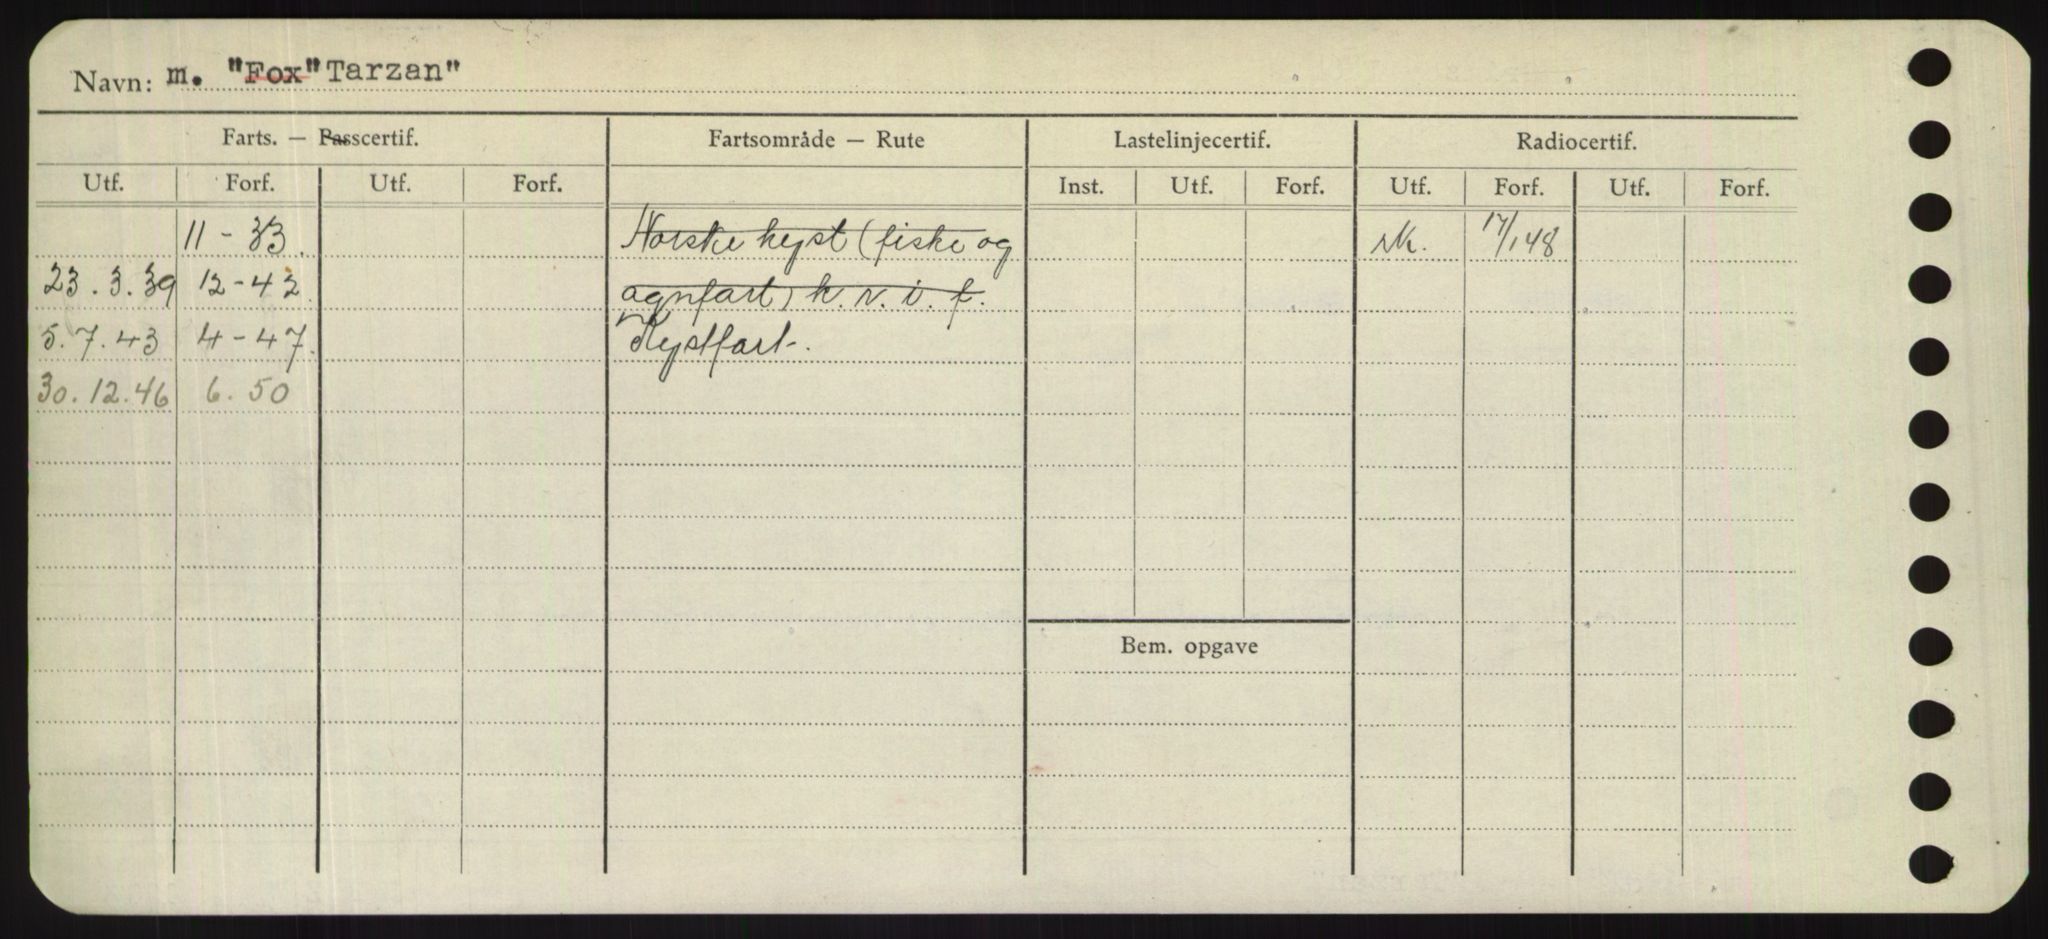 Navn: m. "Fox" Tarzan"
Farts. — Passcertif. Fartsområde — Rute Lastelinjecertif. Radiocertif.
Utf. Forf. Utf. Forf. Inst. Utf. Forf. Utf. Forf. Utf. Forf.
11 - 33. Norske kyst (fiske og 17/1 48
23.3.39 12-42 agnfart) k. v. i. f.
5.7.43 4-47. Kystfart.
30.12.46 6.50
Bem. opgave